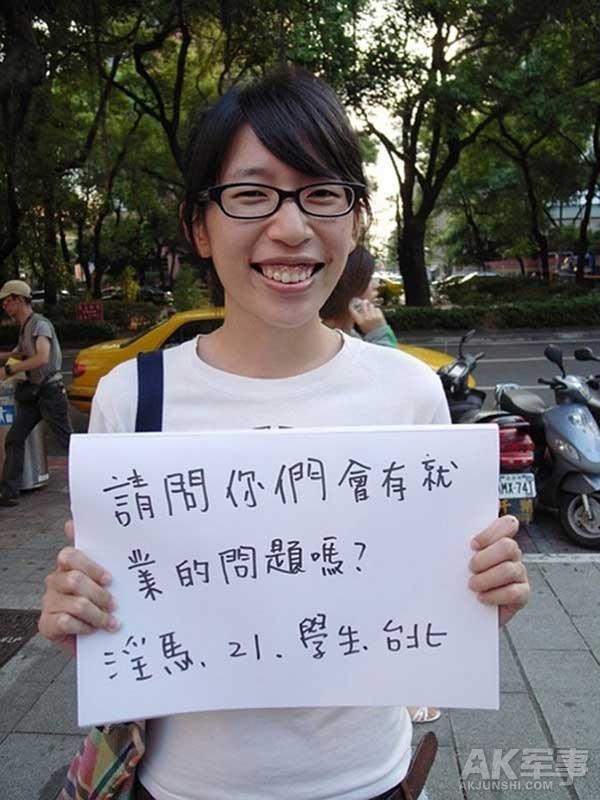 請問你們會有就
業的問題嗎?
淫馬、21、學生、台北
MX-74
AK军事
AKJUNSHI.COM